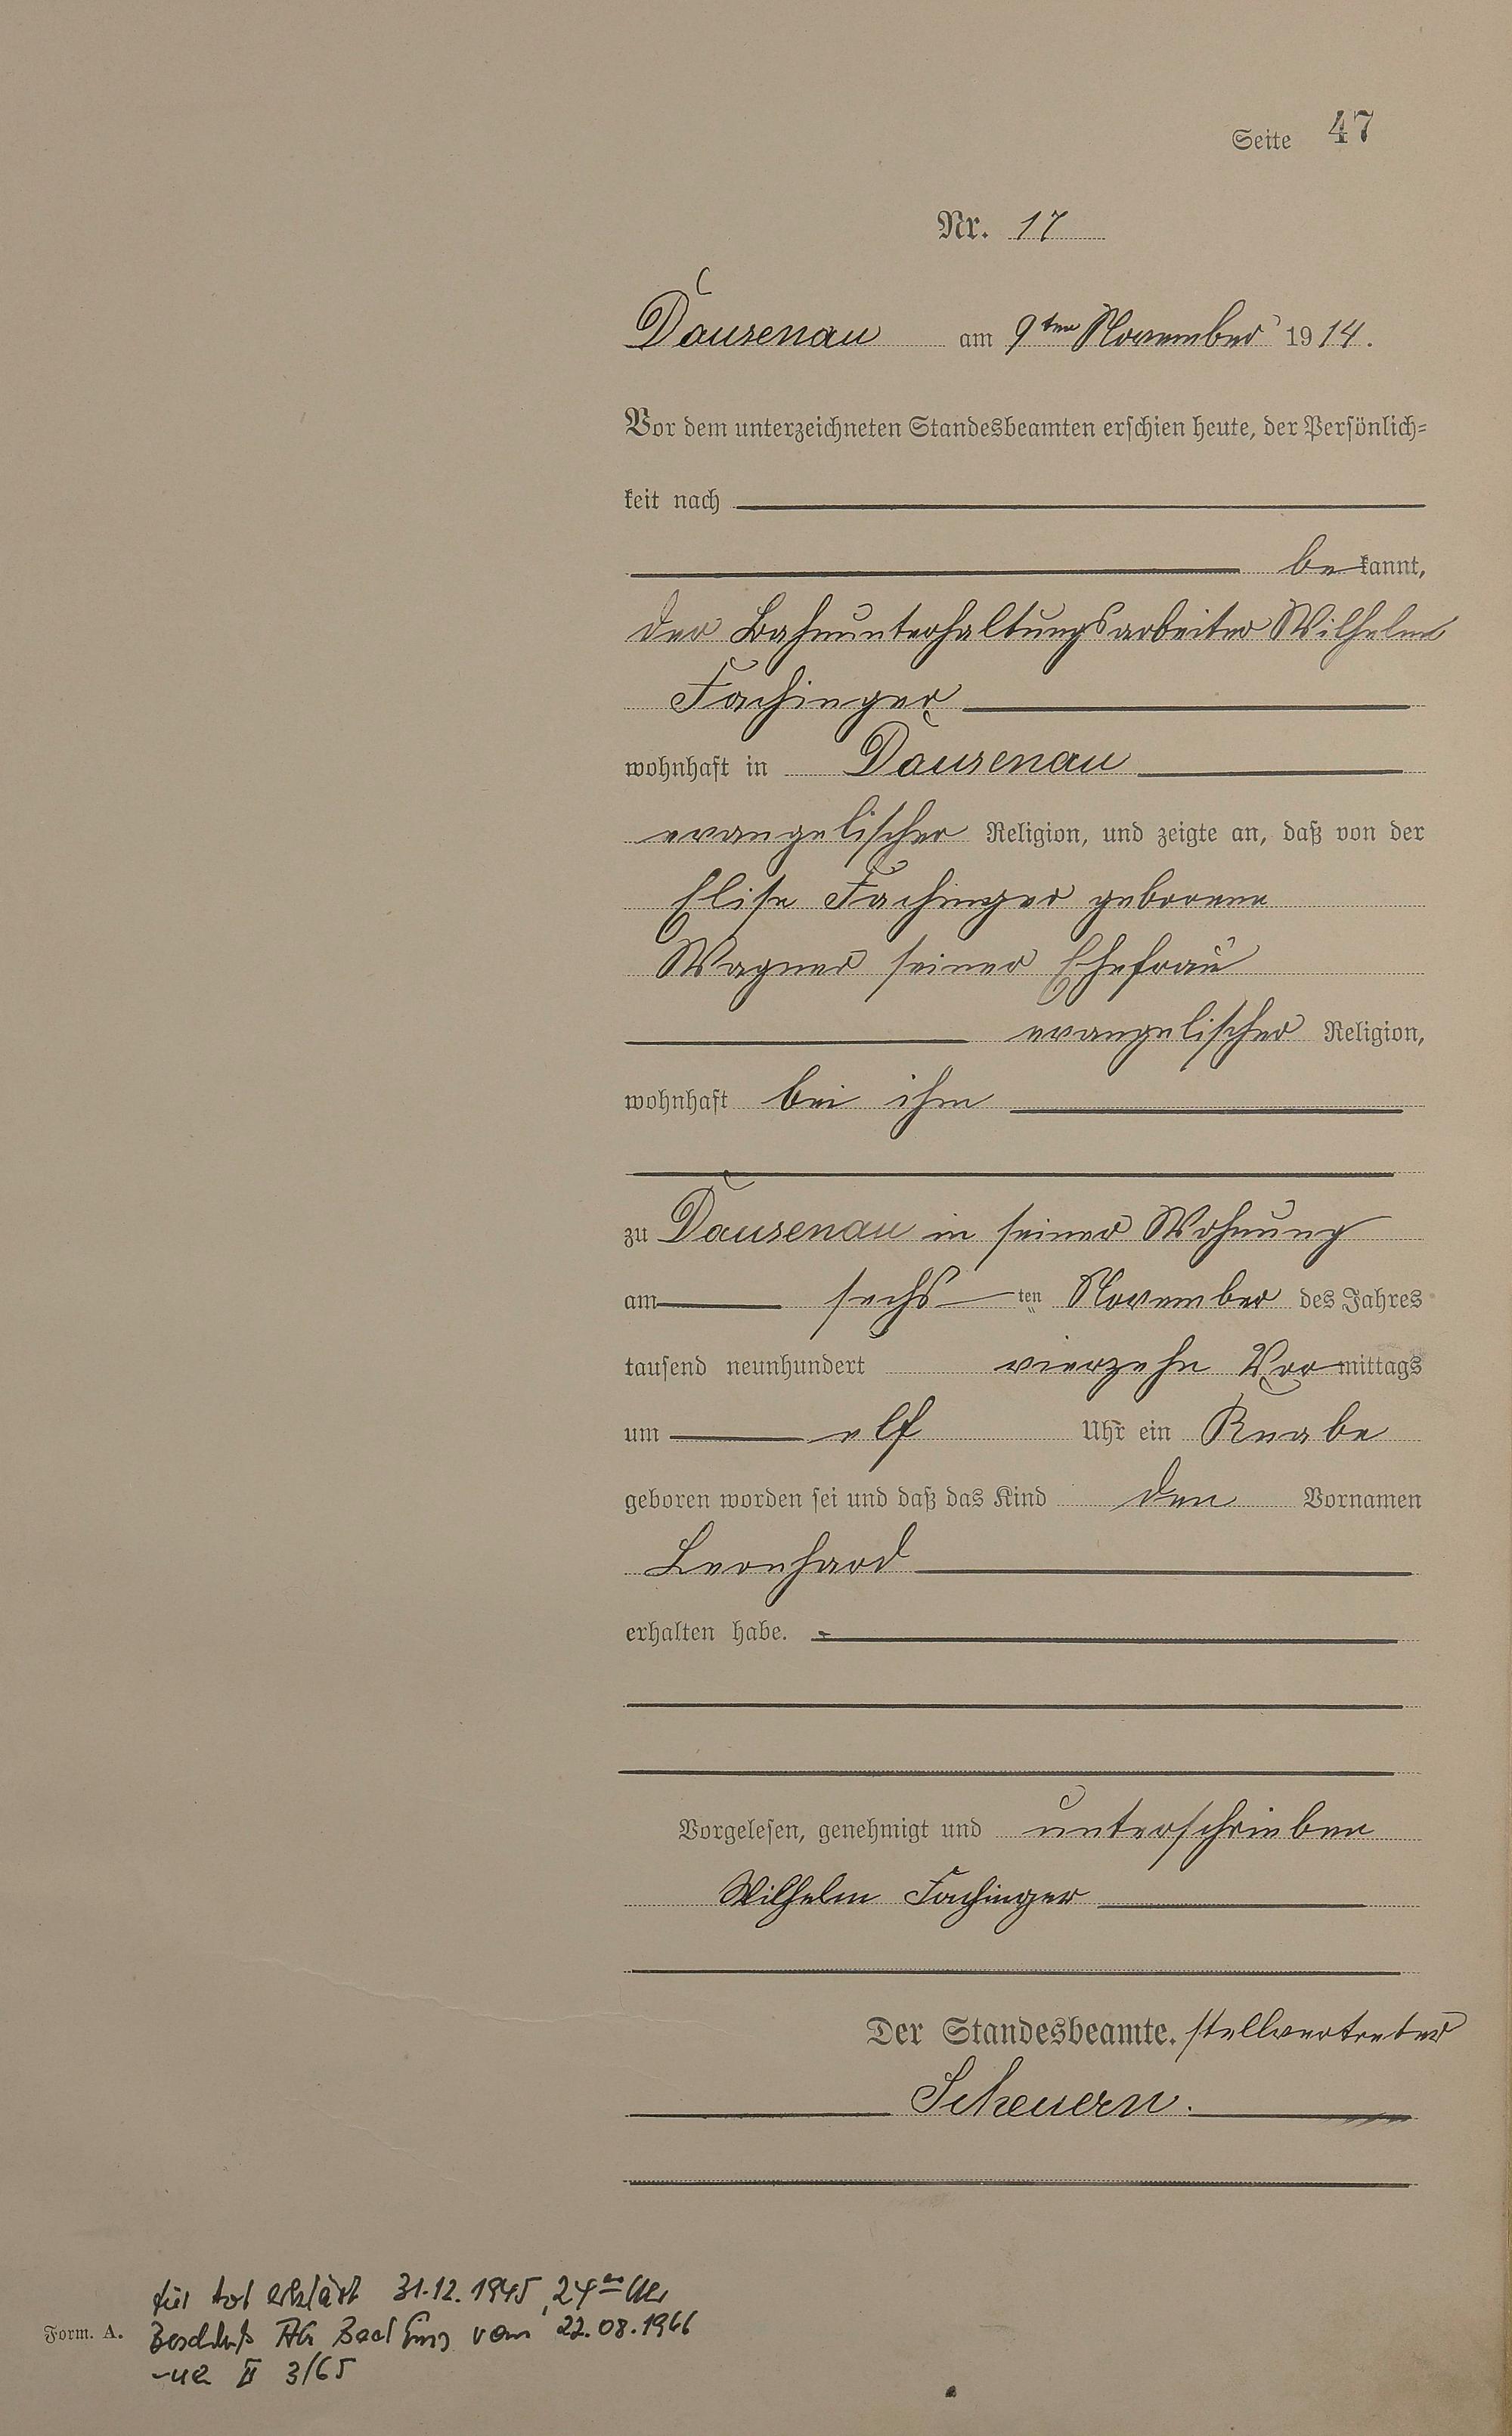 Seite 47
Nr. 17
Dausenau am 9ten November 1914.
Vor dem unterzeichneten Standesbeamten erschien heute, der Persönlich=
keit nach
be kannt,
der Bahnunterhaltungsarbeiter Wilhelm
Fachinger
wohnhaft in Dausenau
evangelischer Religion, und zeigte an, daß von der
Elise Fachinger geborene
Wagner seiner Ehefrau
evangelischer Religion,
wohnhaft bei ihm
zu Dausenau in seiner Wohnung
am sechs ten November des Jahres
tausend neunhundert vierzehn Vormittags
um elf Uhr ein Knabe
geboren worden sei und daß das Kind den Vornamen
Leonhard
erhalten habe.
Vorgelesen, genehmigt und unterschrieben
Wilhelm Fachinger
Der Standesbeamte. stellvertreter
Scheuern.
für tot erklärt 31.12.1945, 24 00 Uhr
Form. A. Beschluß AG Bad Ems vom 22.08.1966
II 3/65